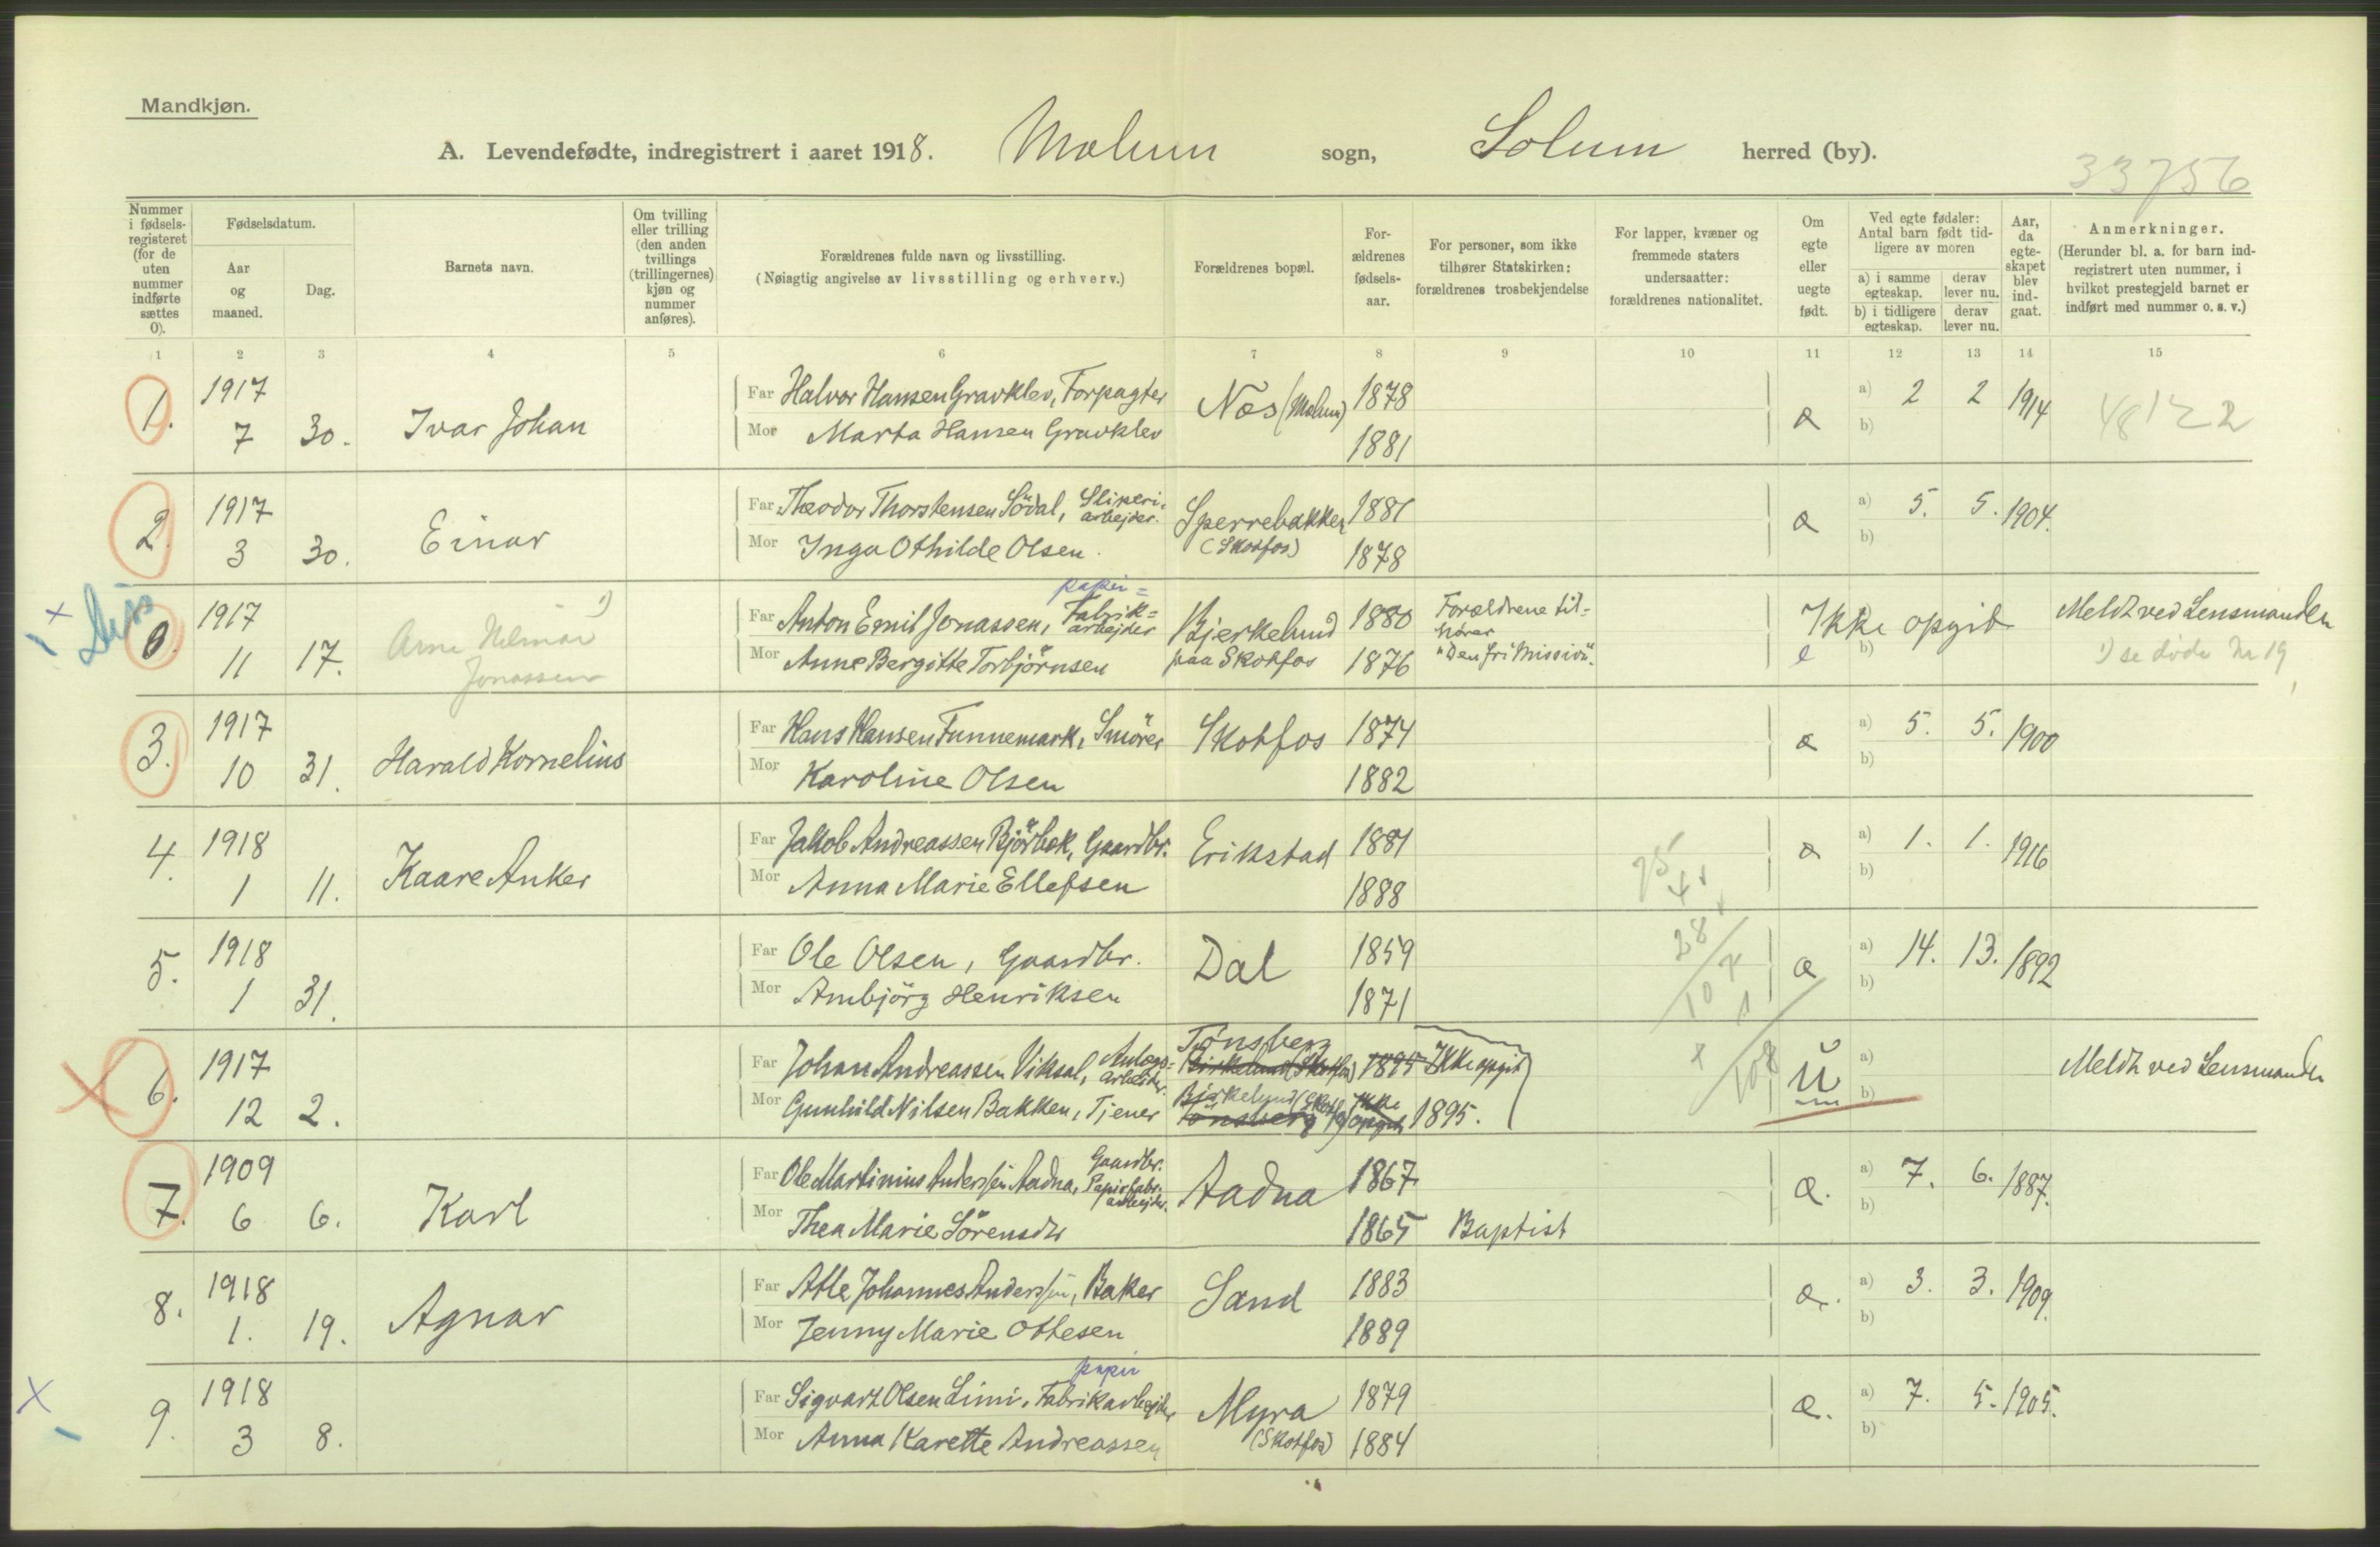 Mandkjøn.
A. Levendefødte, indregistrert i aaret 1918. Melum sogn, Solum herred (by).
33756
Nummer i fødsels-registeret (for de uten nummer indførte sættes 0).
Fødselsdatum.
Aar og maaned.
Dag.
Barnets navn.
Om tvilling eller trilling (den anden tvillings (trillingernes) kjøn og nummer anføres).
Forældrenes fulde navn og livsstilling.
(Nøiagtig angivelse av livsstilling og erhverv.)
Forældrenes bopæl.
For-ældrenes fødsels-aar.
For personer, som ikke tilhører Statskirken: forældrenes trosbekjendelse
For lapper, kvæner og fremmede staters undersaatter: forældrenes nationalitet.
Om egte eller uegte født.
Ved egte fødsler: Antal barn født tid-ligere av moren
a) i samme egteskap. derav lever nu.
b) i tidligere egteskap. derav lever nu.
Aar, da egte-skapet blev ind-gaat.
Anmerkninger.
(Herunder bl. a. for barn ind-registrert uten nummer, i hvilket prestegjeld barnet er indført med nummer o. s. v.)
1 2 3 4 5 6 7 8 9 10 11 12 13 14 15
1. 1917 7 30. Ivar Johan
Far Halvor Hansen Gravklev, Forpagter Næs (Melum) 1878
Mor Marta Hansen Gravklev 1881
æ a) 2 2 1914
b)
2. 1917 3 30. Einar
Far Theodor Thorstensen Södal, Sliperi-arbejder. Sperrebakken 1881
Mor Inga Othilde Olsen. (Skotfos) 1878
æ a) 5. 5. 1904.
b)
0. 1917 11 17. Arne Helmar Jonassen 1)
papir=
Far Anton Emil Jonassen, Fabrik=arbejder Bjerkelund 1880 Forældrene til-hører
Mor Anne Bergitte Torbjörnsen paa Skotfos 1876 "Den fri Mission".
Ikke opgit
e b)
Meldt ved Lensmanden
1) se døde Nr 19
3. 1917 10 31. Harald Kornelius
Far Hans Hansen Funnemark, Smörer Skotfos 1874
Mor Karoline Olsen 1882
æ a) 5. 5. 1900
b)
4. 1918 1 11. Kaare Anker
Far Jakob Andreassen Björbæk, Gaardbr. Erikstad 1881
Mor Anna Marie Ellefsen 1888
æ a) 1. 1. 1916
b)
5. 1918 1 31.
Far Ole Olsen, Gaardbr. Dal 1859
Mor Ambjörg Henriksen 1871
æ a) 14. 13. 1892
b)
6. 1917 12 2.
Tönsberg
Far Johan Andreassen Viksal, Anlægs=arbeider. Birkelund (Skotfos) 1895 Ikke opgit
Mor Gunhild Nilsen Bakken, Tjener Bjørkelund (Skotfos) Tönsberg Ikke opgit 1895.
U a)
b)
Meldt ved Lensmanden
7. 1909 6 6. Karl
Far Ole Martinius Anderssen Aadna, Gaardbr. Papirfabr. arbejder. Aadna 1867
Mor Thea Marie Sörensdtr 1865 Baptist
æ. a) 7. 6. 1887.
b)
8. 1918 1. 19. Agnar
Far Atle Johannes Anderssen, Baker Sand 1883
Mor Jenny Marie Ottesen 1889
æ. a) 3. 3. 1909.
b)
9. 1918 3 8.
papir
Far Sigvart Olsen Limi, Fabrikarbejder Myra 1879
Mor Anna Karette Andreassen (Skotfos) 1884
æ. a) 7. 5. 1905.
b)